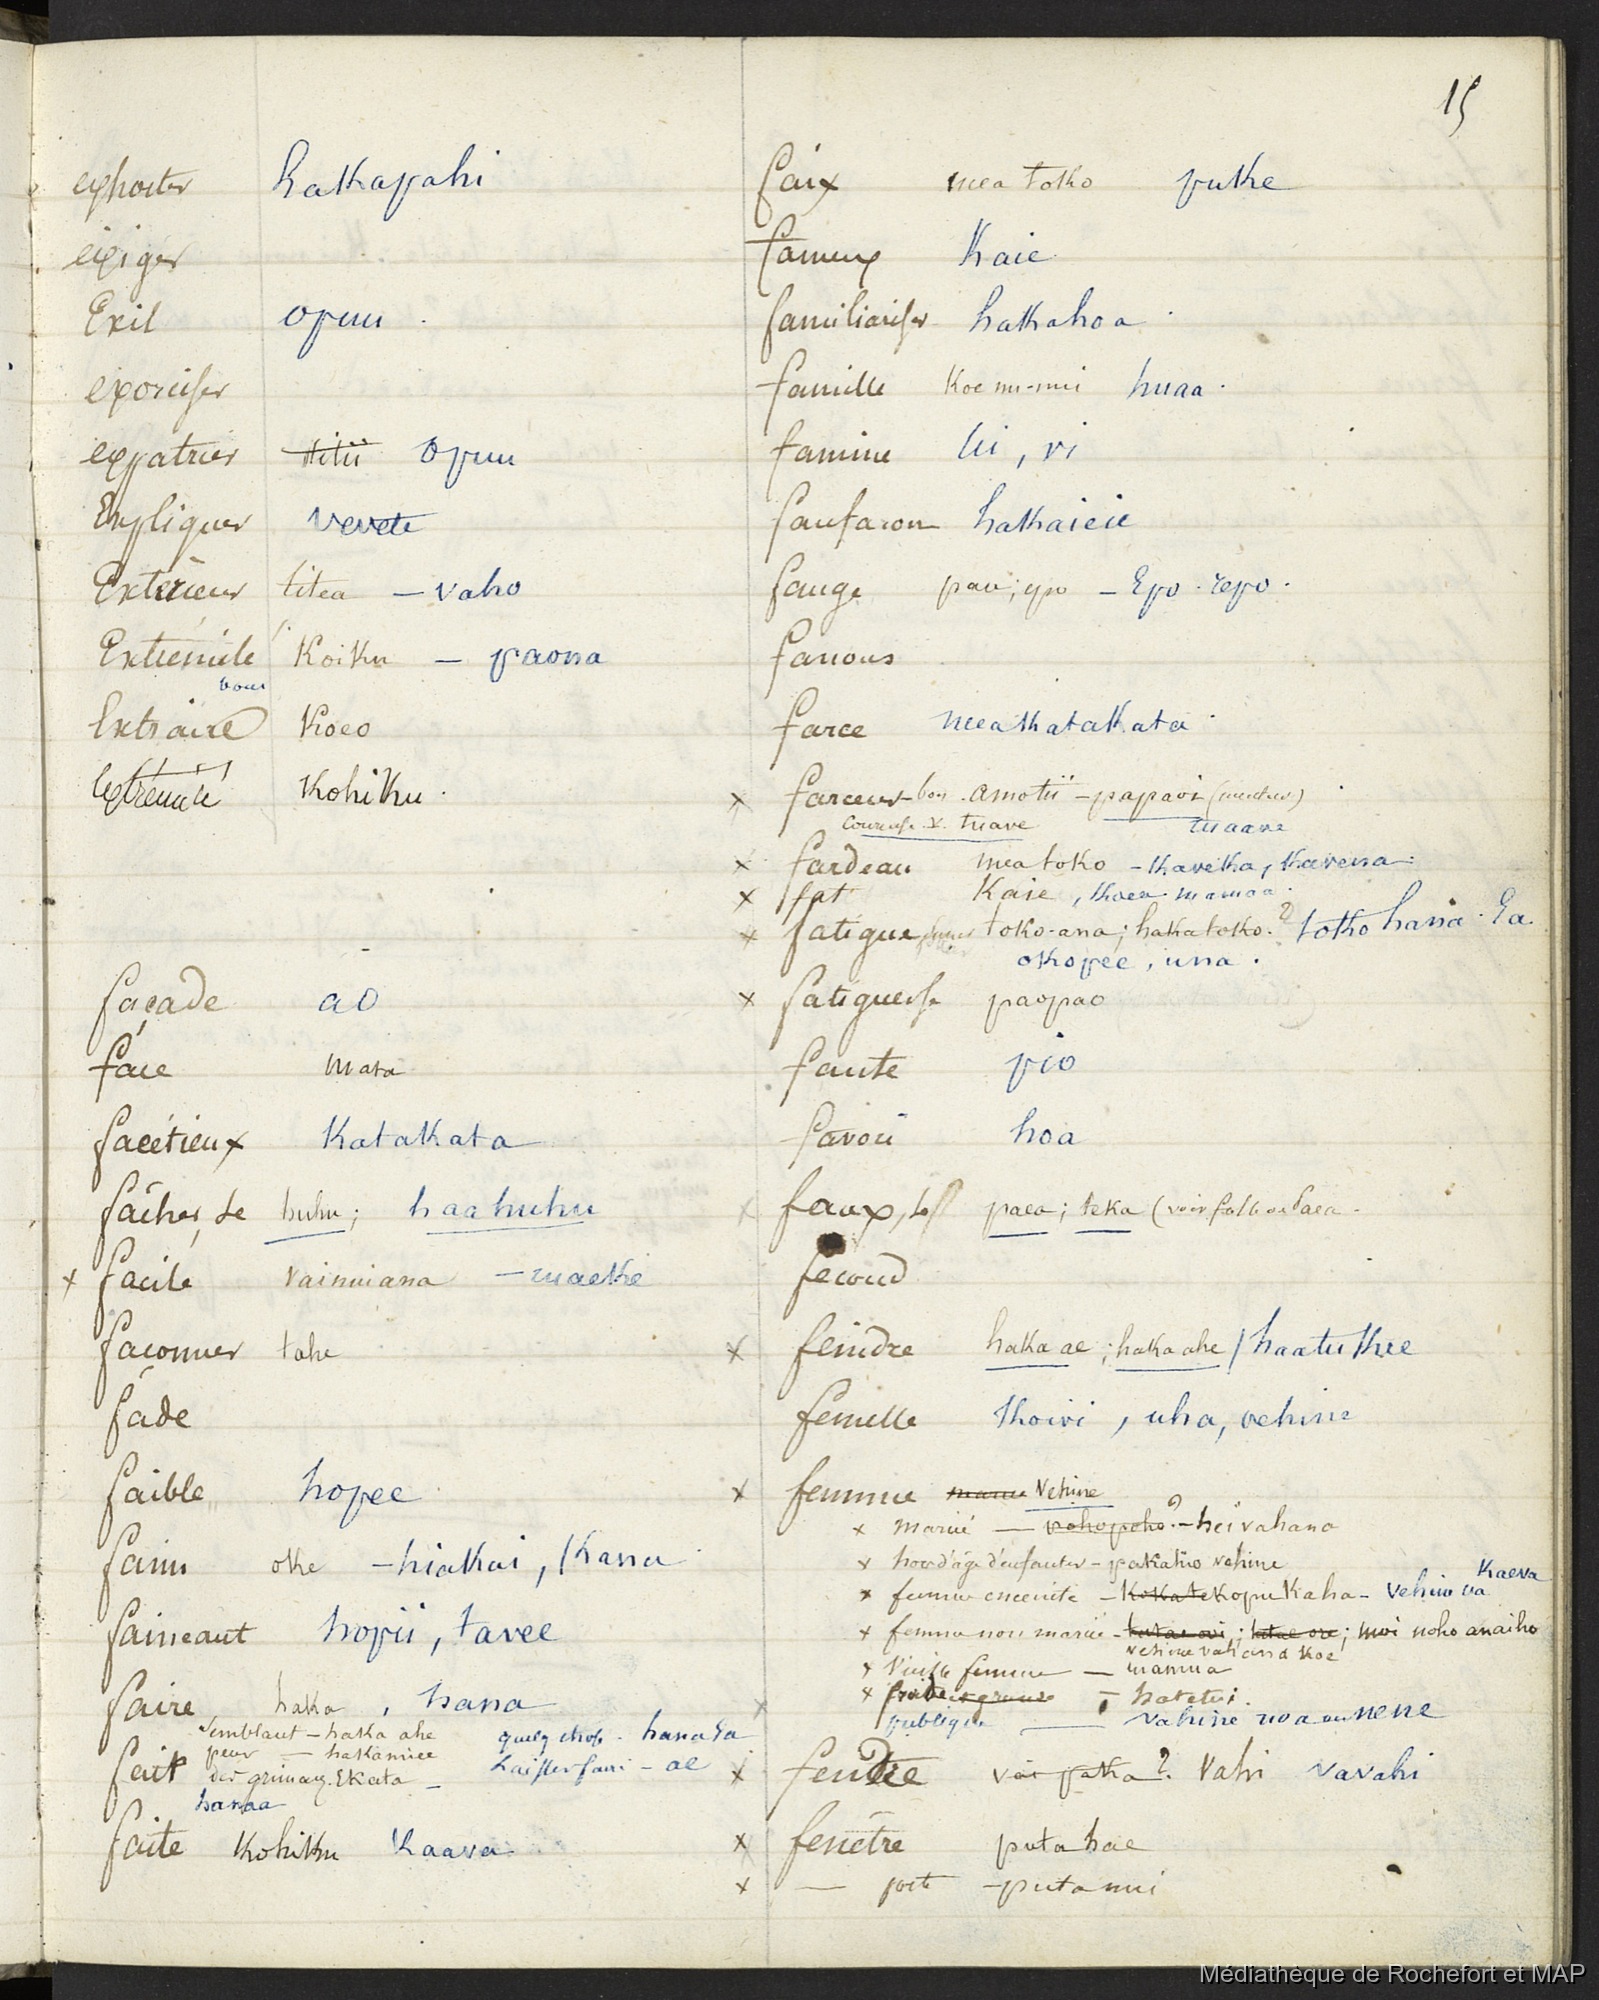 15
exhorter hakapahi
exiger
Exil opuu .
exorciser
expatrier titii opuu
Expliquer vevete
Extérieur titea — vaho
Extrémité Koiku — paona
bout
Extraire Koeo
extrémité Kohiku .
façade ao
face mata
facétieux Katakata
fâcher, se huhu ; haahuhu
x facile vaimiana — maeke
façonner tahe
fade
faible hopee
faim oke — hiakai, Kana
faineant hopii, tavee
faire haka , hana
semblant — haka ahe quelq chose - hanaha
peur — hakamiee Laisser faire - ae
fait des grimac. Ekata —
hanaa
faite Kohiku Kaava
faix mea toko puke
fameux Kaie
familiariser hakahoa .
famille Koe mi-mui huaa .
famine ui , vi
fanfaron hakaieie
fange pau; epo — Epo . repo .
fanons
farce meakatakata .
x farceur - bon . amotii — papaoi (menteur)
coureuse x. tuave maave
x fardeau mea toko — kaveka, kavena .
x fat Kaie , koea mamaa .
x fatigue toko-ana; hakatoko. ? toko hana . Ea
okopee , una .
x fatiguer se paopao
faute pio
favori hoa
x faux, se paea ; teka (voir
fécond
x feindre haka ae ; haka ahe / haatukee
femelle koivi , uha, vehine
x femme Vehine
x mariée — vohopoho ? — hei vahana
x hors d'âge d'enfanter — pakahio vehine
x femme enceinte — Kokate Kopu Kaha — vehine va Kaeva
x femme non mariée — ; ; moi noho anaiho
vehine vahana Koe
x Vieille femme — mamua
x — hatetui .
publique — vahine noa ou nene
x fendre vai paka ? . Vahi vavahi
x fenêtre puta hae
x — porte — puta nui
Médiathèque de Rochefort et MAP